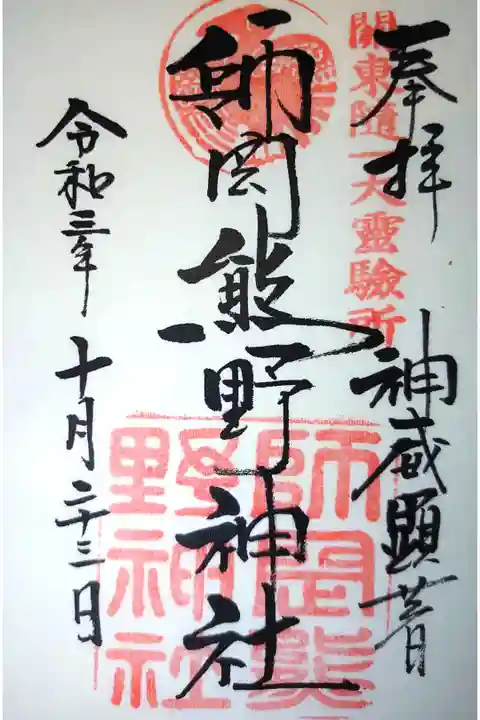 奉拝
關東随一大靈驗所
神威顕著
師岡熊野神社
師岡熊
野神社
令和三年十月二十三日